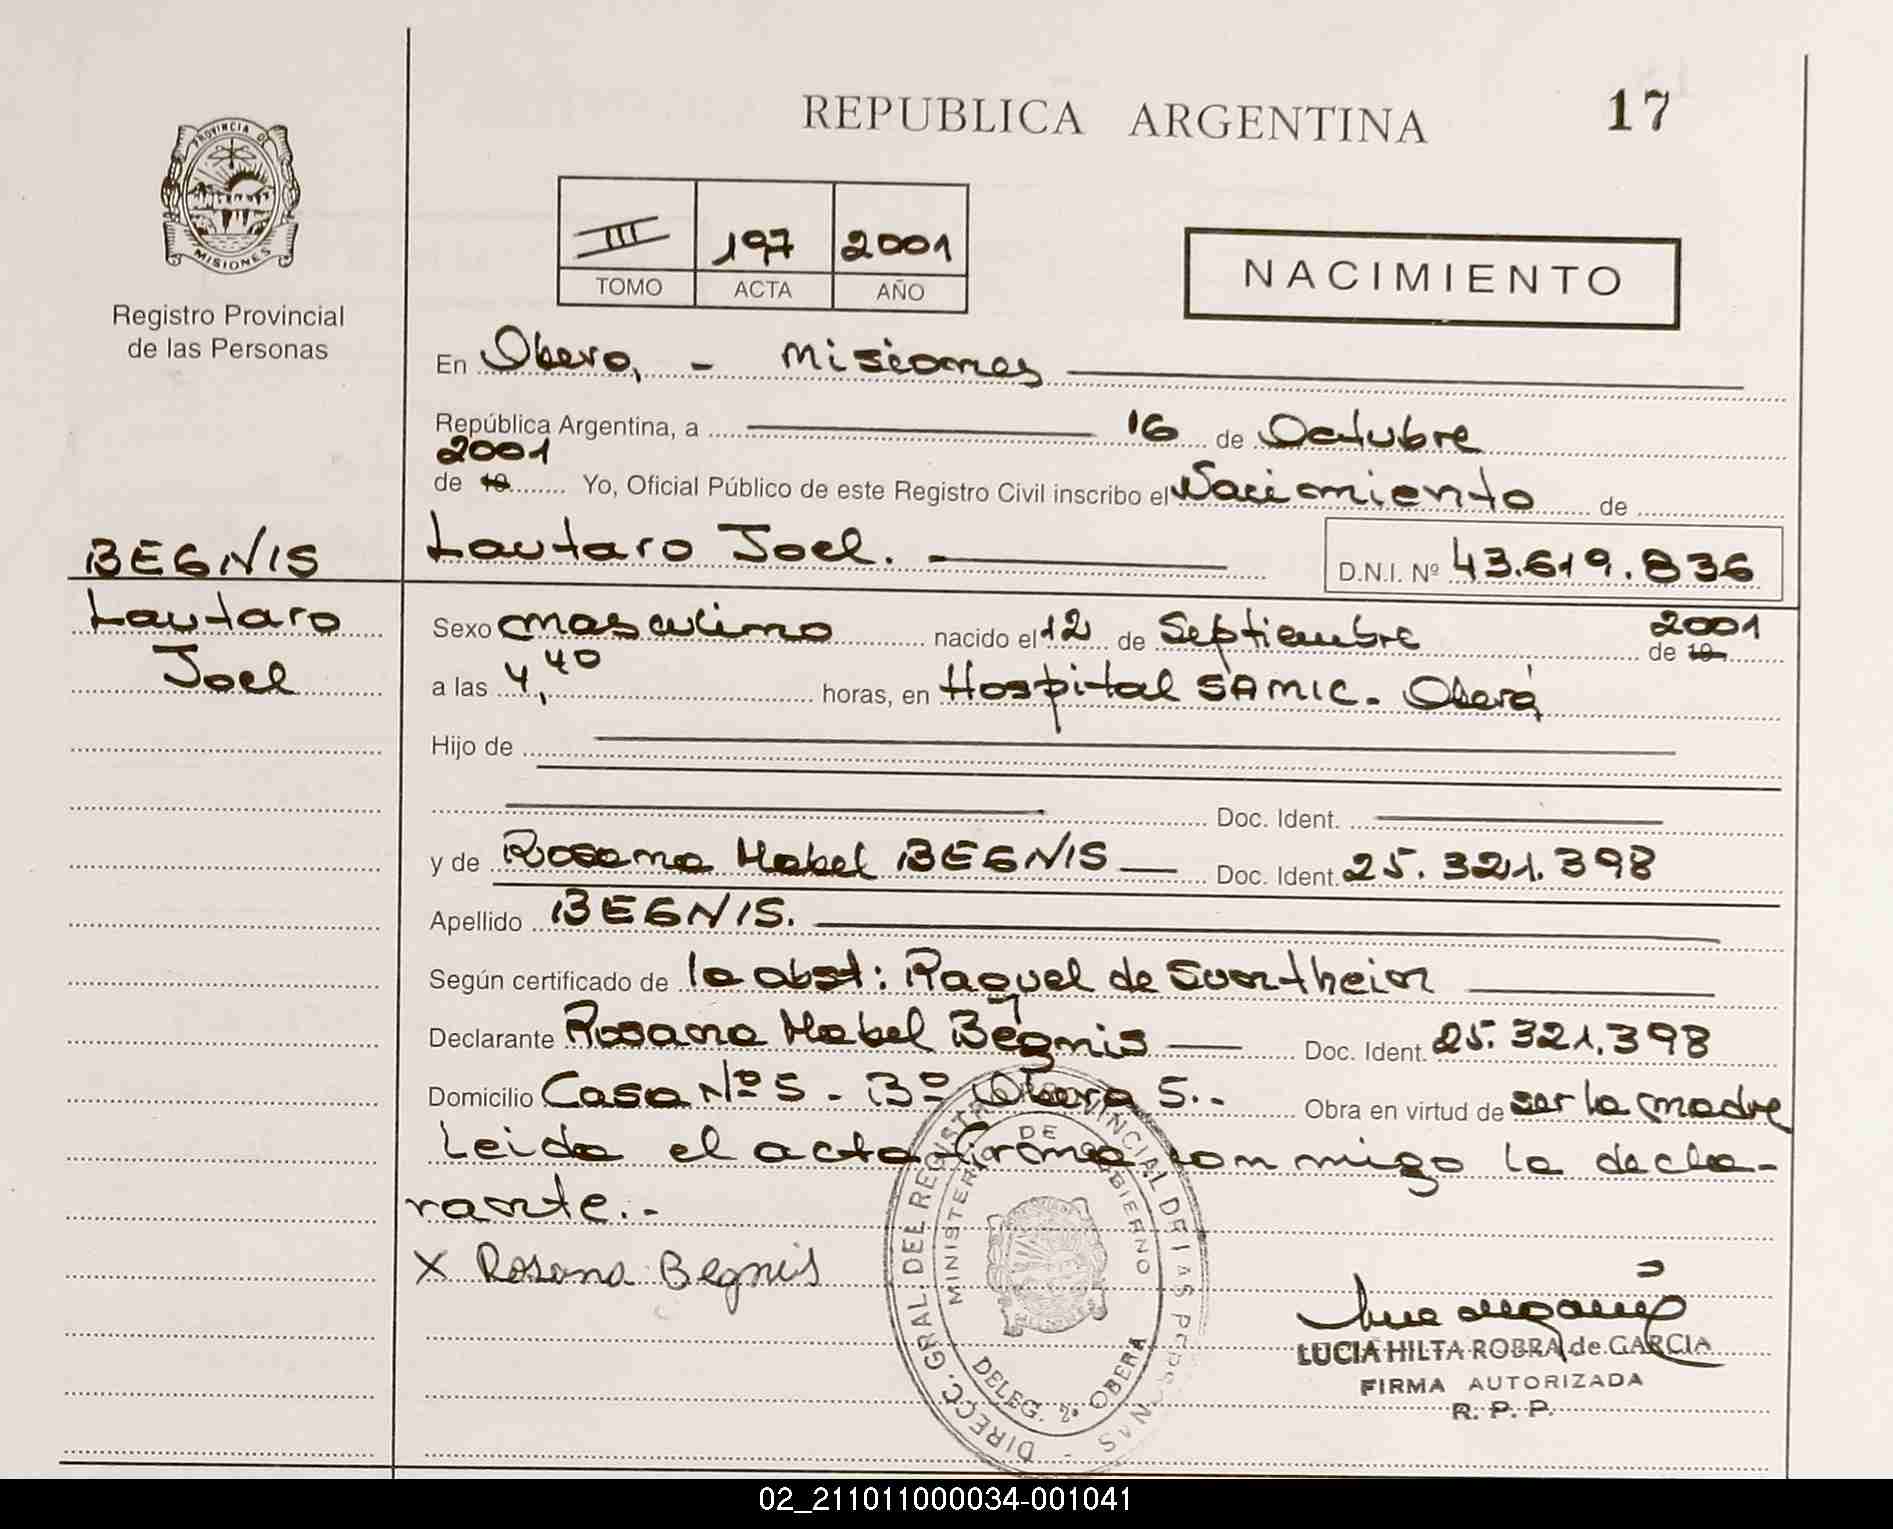 REPUBLICA ARGENTINA
17
PROVINCIA DE
MISIONES
Registro Provincial
de las Personas
III 197 2001
TOMO ACTA AÑO
NACIMIENTO
En Obera, - Misiones
República Argentina, a 16 de Octubre
2001
de 19 Yo, Oficial Público de este Registro Civil inscribo el Nacimiento de
BEGNIS
Lautaro Joel. -
D.N.I. Nº 43.619.836
Lautaro
Joel
Sexo masculino nacido el 12 de Septiembre de 19 2001
a las 4,40 horas, en Hospital SAMIC. Oberá
Hijo de
Doc. Ident.
y de Rosana Mabel BEGNIS Doc. Ident. 25.321.398
Apellido BEGNIS.
Según certificado de la obst: Raquel de Suntheim
Declarante Rosana Mabel Begnis Doc. Ident. 25.321.398
Domicilio Casa Nº 5 - Bº Obera 5.- Obra en virtud de ser la madre
Leida el acta firma conmigo la decla-
rante.-
X Rosana Begnis
DIRECC. GRAL. DEL REGISTRO PROVINCIAL DE LAS PERSONAS
MINISTERIO DE GOBIERNO
DELEG. 2º OBERA
LUCIA HILTA ROBRA de GARCIA
FIRMA AUTORIZADA
R. P. P.
02_211011000034-001041